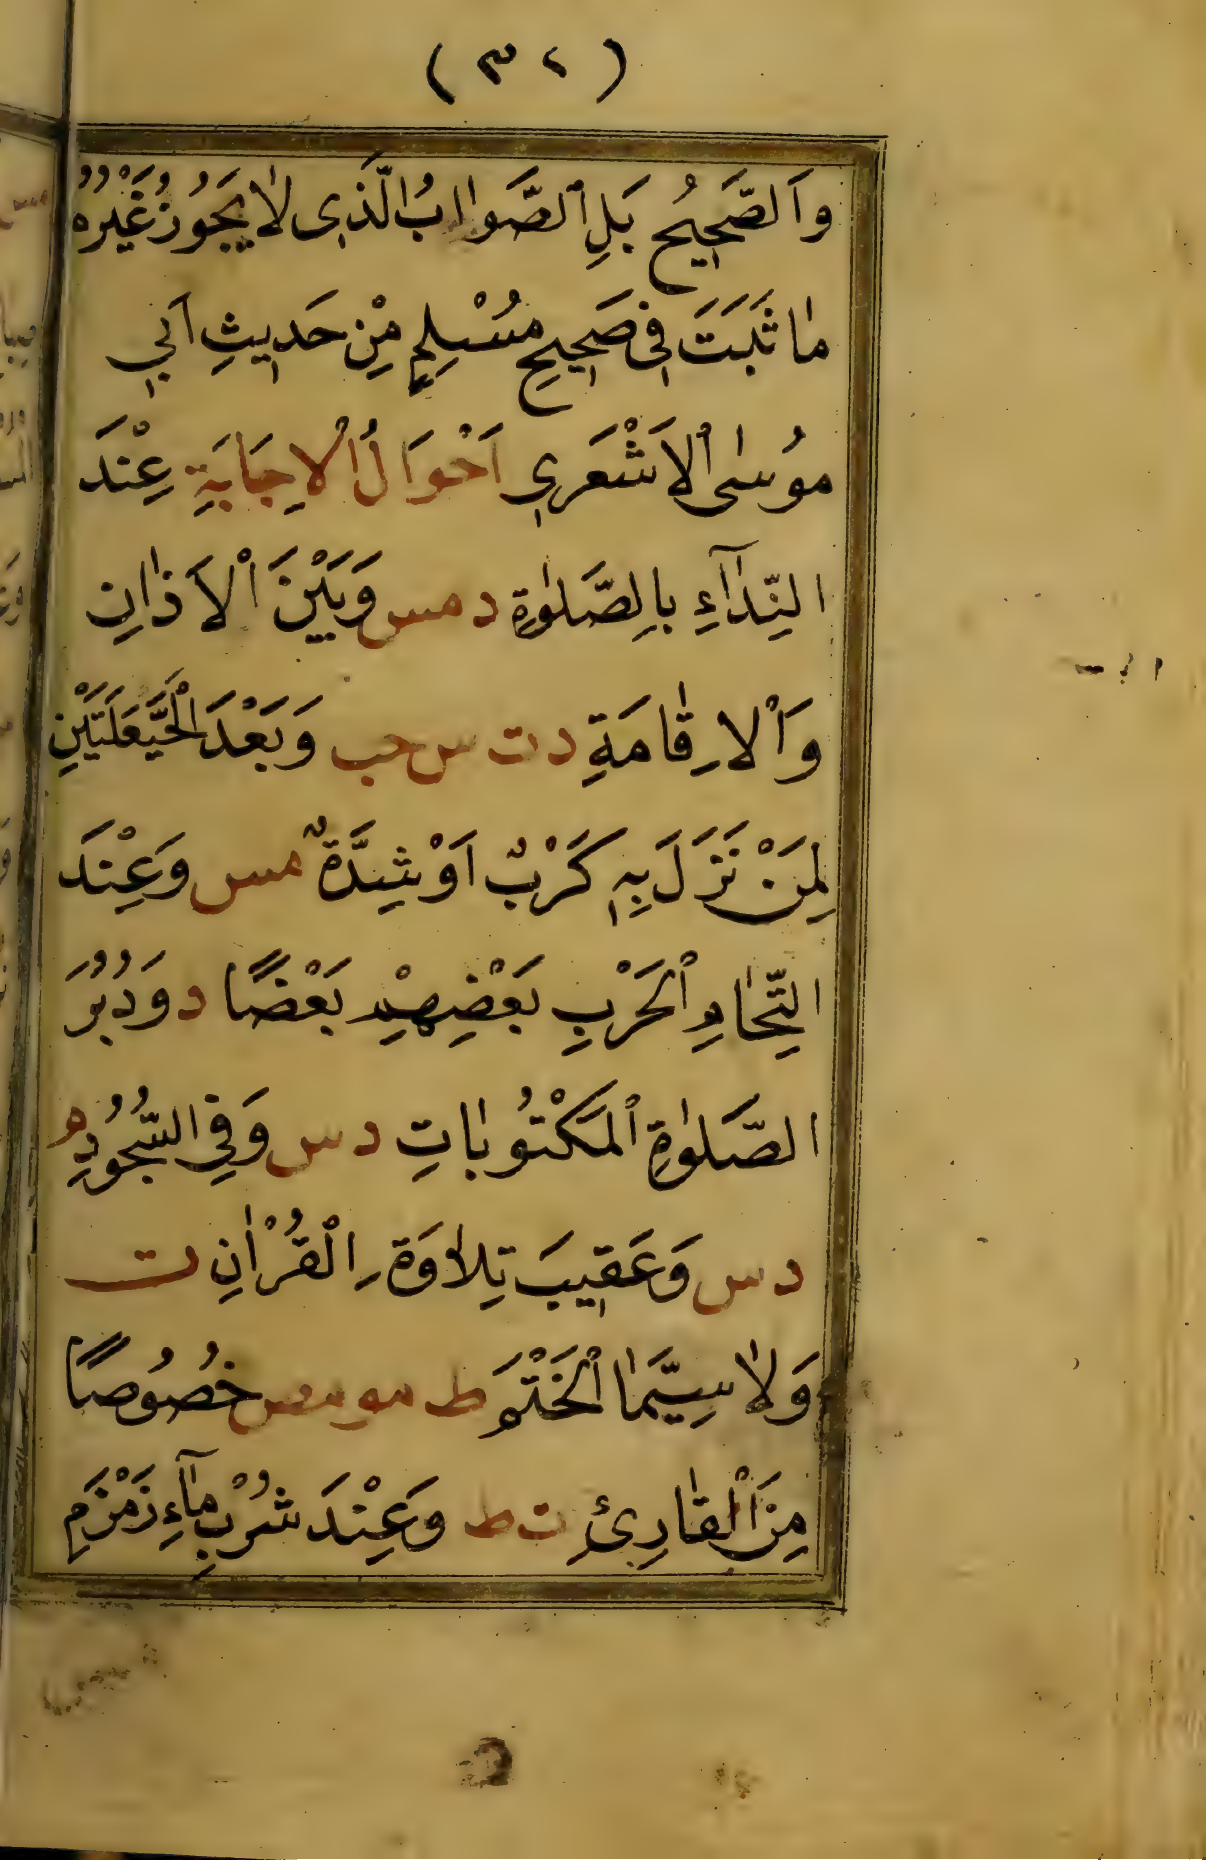 (٣٢)
وَالصَّحِيحُ بَلِ الصَّوَابُ الَّذِى لَا يَجُوزُ غَيْرُهُ
مَا ثَبَتَ فِى صَحِيحِ مُسْلِمٍ مِنْ حَدِيثِ اَبِي
مُوسٰى الْاَشْعَرِي اَحْوَالُ الْاِجَابَةِ عِنْدَ
النِّدَآءِ بِالصَّلٰوةِ د مس وَبَيْنَ الْاَذَانِ
وَالْاِقَامَةِ د ت س حب وَبَعْدَ الْحَيَّعَلَتَيْنِ
لِمَنْ نَزَلَ بِهٖ كَرْبٌ اَوْ شِدَّةٌ مس وَعِنْدَ
الْتِحَامِ الْحَرْبِ بَعْضِهِمْ بَعْضًا د وَدُبُرَ
الصَّلٰوةِ الْمَكْتُوبَاتِ د س وَفِى السُّجُودِ م
د س وَعَقِيبَ تِلَاوَةِ الْقُرْاٰنِ ت
وَلَا سِيَّمَا الْخَتْمَ ط مو مص خُصُوصًا
مِنَ الْقَارِئِ ت ط وَعِنْدَ شُرْبِ مَآءِ زَمْزَمِ